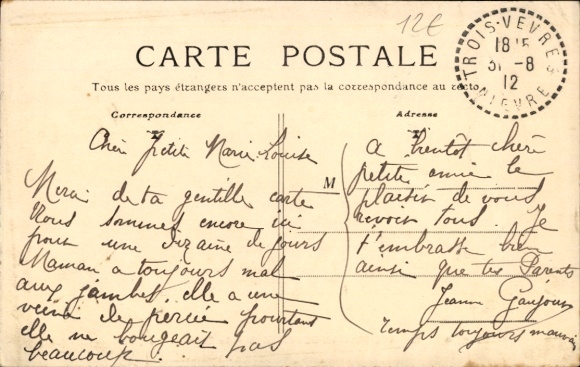 12€
CARTE POSTALE
Tous les pays étrangers n'acceptent pas la correspondance au recto
TROIS-VEVRES
18 15
31 -8
12
NIEVRE
Correspondance
Adresse
Chère petite Marie Louise
Merci de ta gentille carte
Nous sommes encore ici
pour une dizaine de jours
Maman a toujours mal
aux jambes, elle a une
veine de percée pourtant
elle ne bougeait pas
beaucoup.
M
A bientôt chère
petite amie le
plaisir de vous
revoir tous. Je
t'embrasse bien
ainsi que tes Parents
Jeanne
Temps toujours mauvais